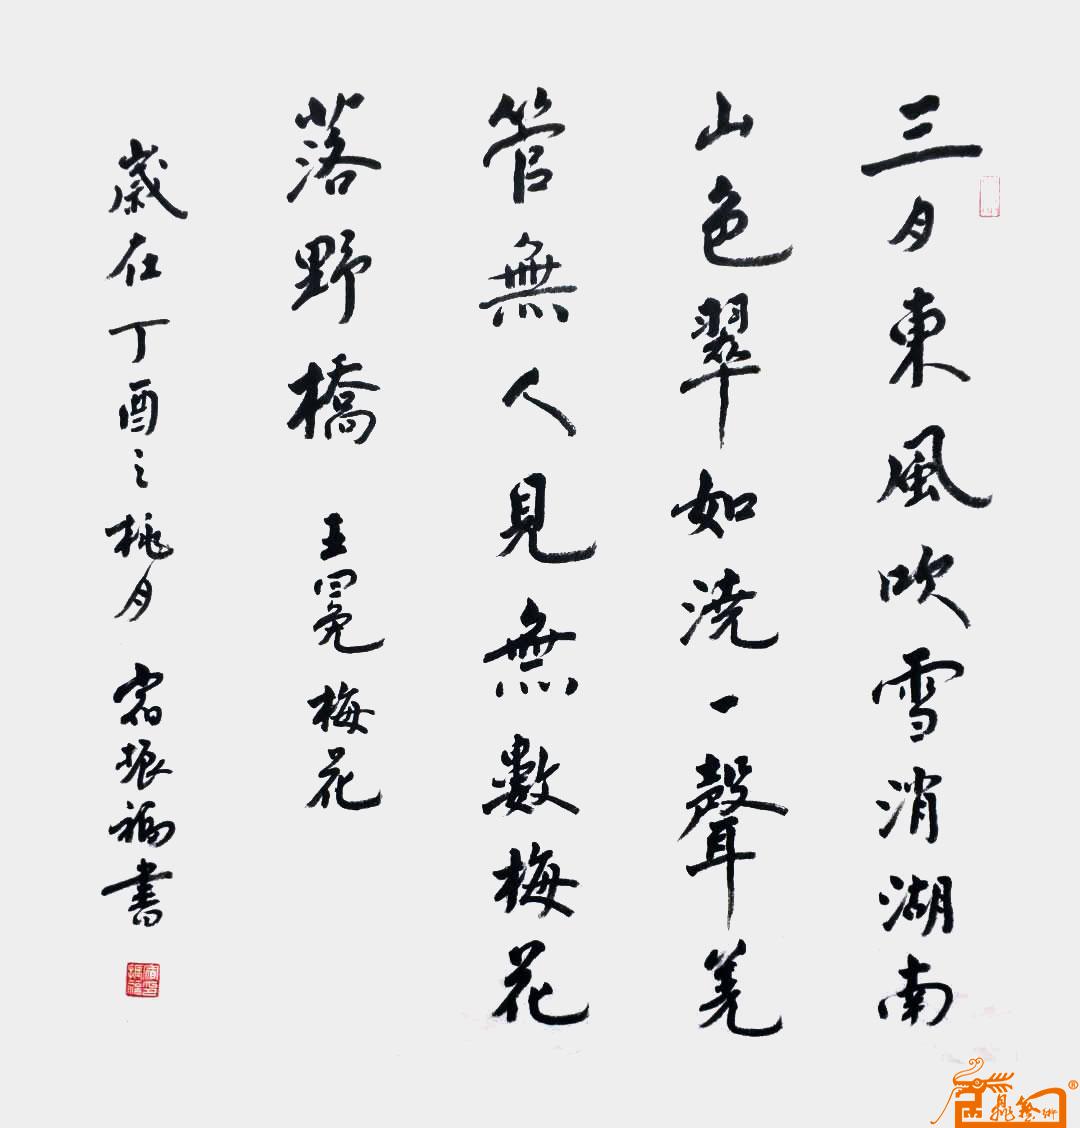 三月東風吹雪消湖南
山色翠如澆一聲羌
管無人見無數梅花
落野橋 王冕梅花
歲在丁酉之桃月 宿振福書